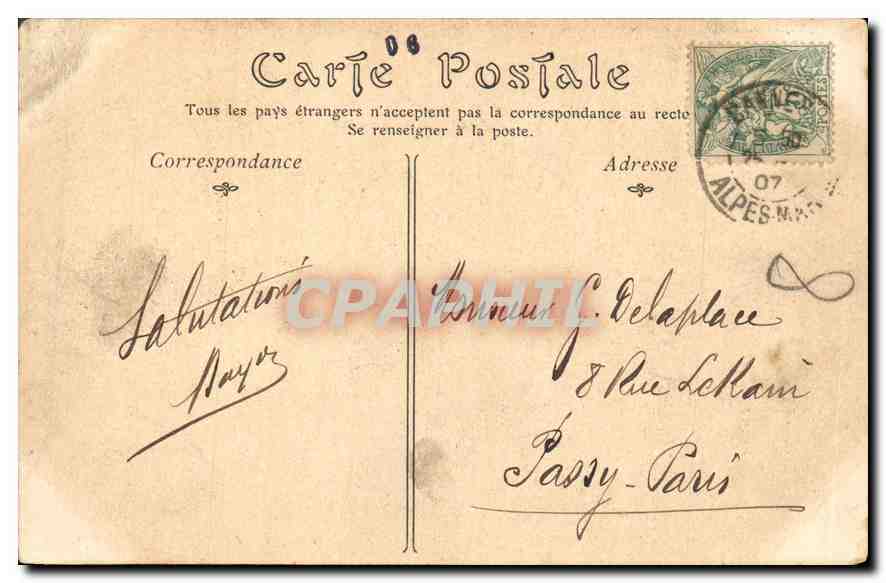 06
Carte Postale
Tous les pays étrangers n'acceptent pas la correspondance au recto
Se renseigner à la poste.
Correspondance
Adresse
CANNES
07
ALPES-MAR
8
Salutations
Monsieur G. Delaplace
8 Rue LeKain
Passy-Paris
CPAPHIL